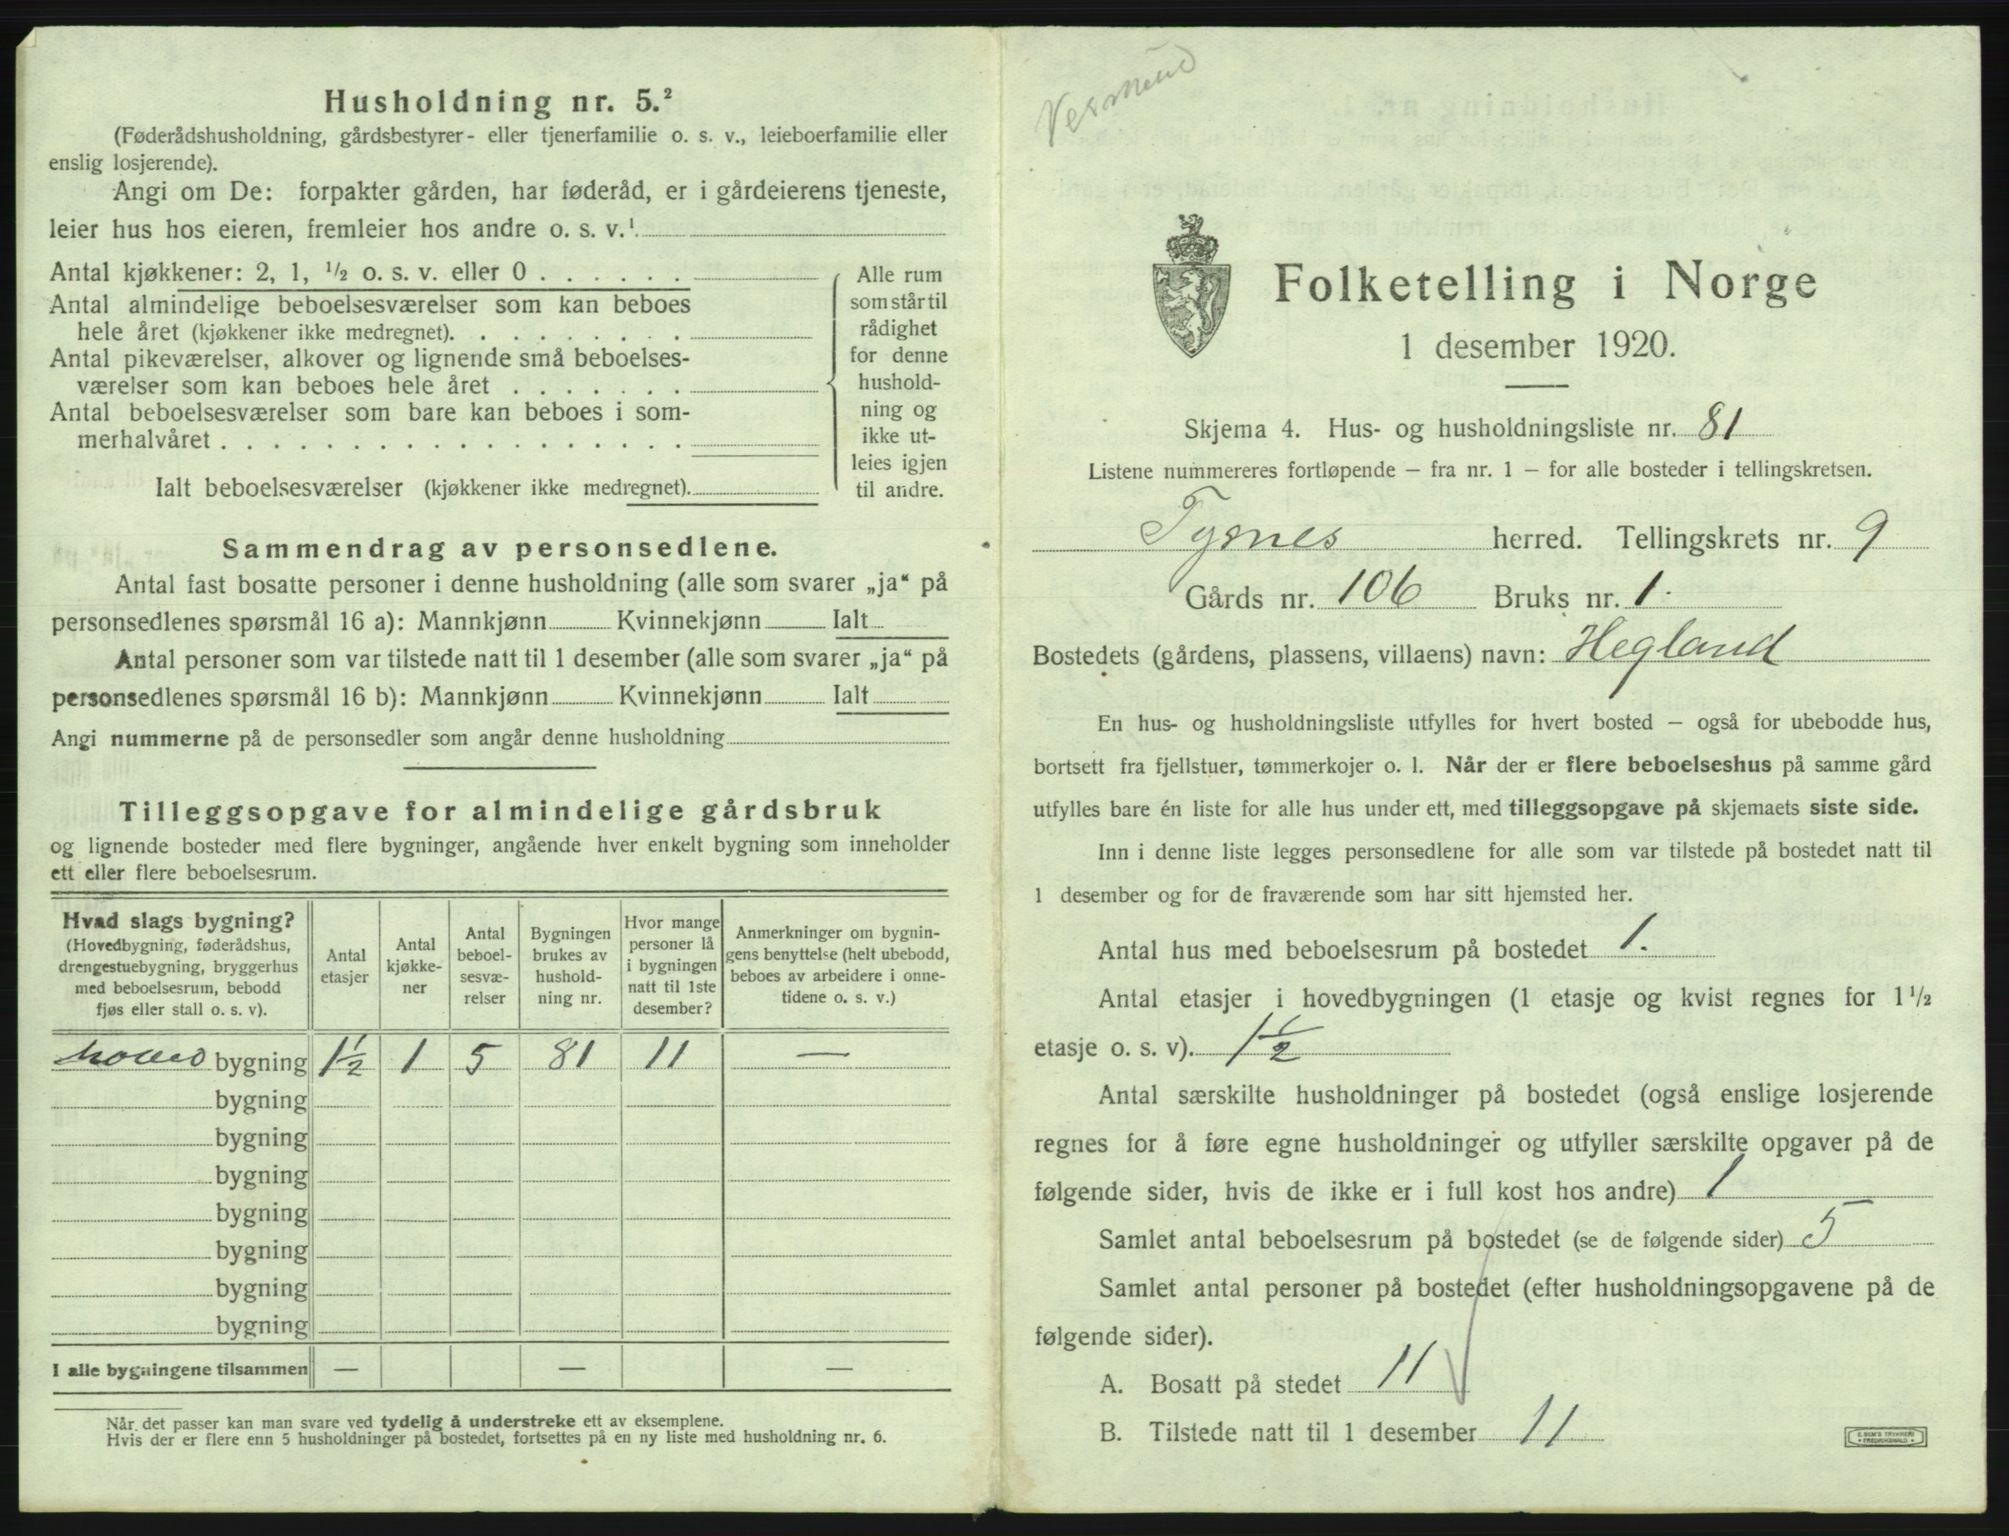 Husholdning nr. 5.²
(Føderådshusholdning, gårdsbestyrer- eller tjenerfamilie o. s. v., leieboerfamilie eller
enslig losjerende).
Angi om De: forpakter gården, har føderåd, er i gårdeierens tjeneste,
leier hus hos eieren, fremleier hos andre o. s. v.¹
Antal kjøkkener: 2, 1, ½ o. s. v. eller 0 . . . . . .
Antal almindelige beboelsesværelser som kan beboes
hele året (kjøkkener ikke medregnet). . . . . . . . .
Antal pikeværelser, alkover og lignende små beboelses-
værelser som kan beboes hele året . . . . . . .
Antal beboelsesværelser som bare kan beboes i som-
merhalvåret . . . . . . . . . . . . . . . . . .
Ialt beboelsesværelser (kjøkkener ikke medregnet).
Alle rum
som står til
rådighet
for denne
hushold-
ning og
ikke ut-
leies igjen
til andre.
Sammendrag av personsedlene.
Antal fast bosatte personer i denne husholdning (alle som svarer „ja“ på
personsedlenes spørsmål 16 a): Mannkjønn Kvinnekjønn Ialt
Antal personer som var tilstede natt til 1 desember (alle som svarer „ja“ på
personsedlenes spørsmål 16 b): Mannkjønn Kvinnekjønn Ialt
Angi nummerne på de personsedler som angår denne husholdning
Tilleggsopgave for almindelige gårdsbruk
og lignende bosteder med flere bygninger, angående hver enkelt bygning som inneholder
ett eller flere beboelsesrum.
Hvad slags bygning?
(Hovedbygning, føderådshus,
drengestuebygning, bryggerhus
med beboelsesrum, bebodd
fjøs eller stall o. s. v).
Antal
etasjer
Antal
kjøkke-
ner
Antal
beboel-
sesvæ-
relser
Bygningen
brukes av
hushold-
ning nr.
Hvor mange
personer lå
i bygningen
natt til 1ste
desember?
Anmerkninger om bygnin-
gens benyttelse (helt ubebodd,
beboes av arbeidere i onne-
tidene o. s. v.)
hoved bygning 1½ 1 5 81 11 —
bygning
bygning
bygning
bygning
bygning
bygning
bygning
I alle bygningene tilsammen — — —
Når det passer kan man svare ved tydelig å understreke ett av eksemplene.
Hvis der er flere enn 5 husholdninger på bostedet, fortsettes på en ny liste med husholdning nr. 6.
Folketelling i Norge
1 desember 1920.
Skjema 4. Hus- og husholdningsliste nr. 81
Listene nummereres fortløpende – fra nr. 1 – for alle bosteder i tellingskretsen.
Tysnes herred. Tellingskrets nr. 9
Gårds nr. 106 Bruks nr. 1.
Bostedets (gårdens, plassens, villaens) navn: Hegland
En hus- og husholdningsliste utfylles for hvert bosted – også for ubebodde hus,
bortsett fra fjellstuer, tømmerkojer o. l. Når der er flere beboelseshus på samme gård
utfylles bare én liste for alle hus under ett, med tilleggsopgave på skjemaets siste side.
Inn i denne liste legges personsedlene for alle som var tilstede på bostedet natt til
1 desember og for de fraværende som har sitt hjemsted her.
Antal hus med beboelsesrum på bostedet 1.
Antal etasjer i hovedbygningen (1 etasje og kvist regnes for 1½
etasje o. s. v). 1½
Antal særskilte husholdninger på bostedet (også enslige losjerende
regnes for å føre egne husholdninger og utfyller særskilte opgaver på de
følgende sider, hvis de ikke er i full kost hos andre) 1
Samlet antal beboelsesrum på bostedet (se de følgende sider) 5
Samlet antal personer på bostedet (efter husholdningsopgavene på de
følgende sider).
A. Bosatt på stedet 11
B. Tilstede natt til 1 desember 11